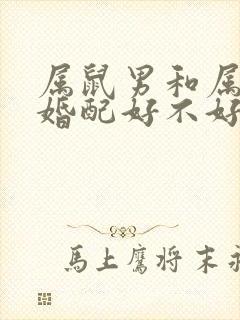 属鼠男和属
婚配好不好
馬上鷹将末